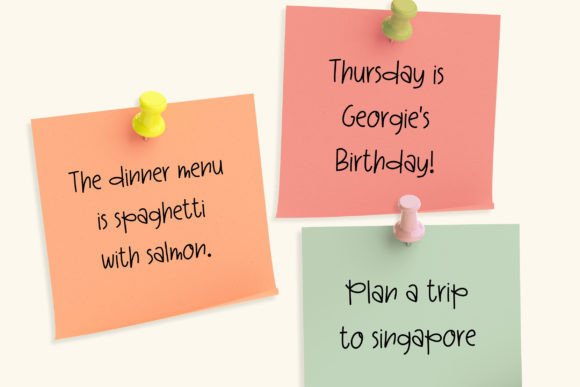 The dinner menu
is spaghetti
with salmon.
Thursday is
Georgie's
Birthday!
Plan a trip
to singapore